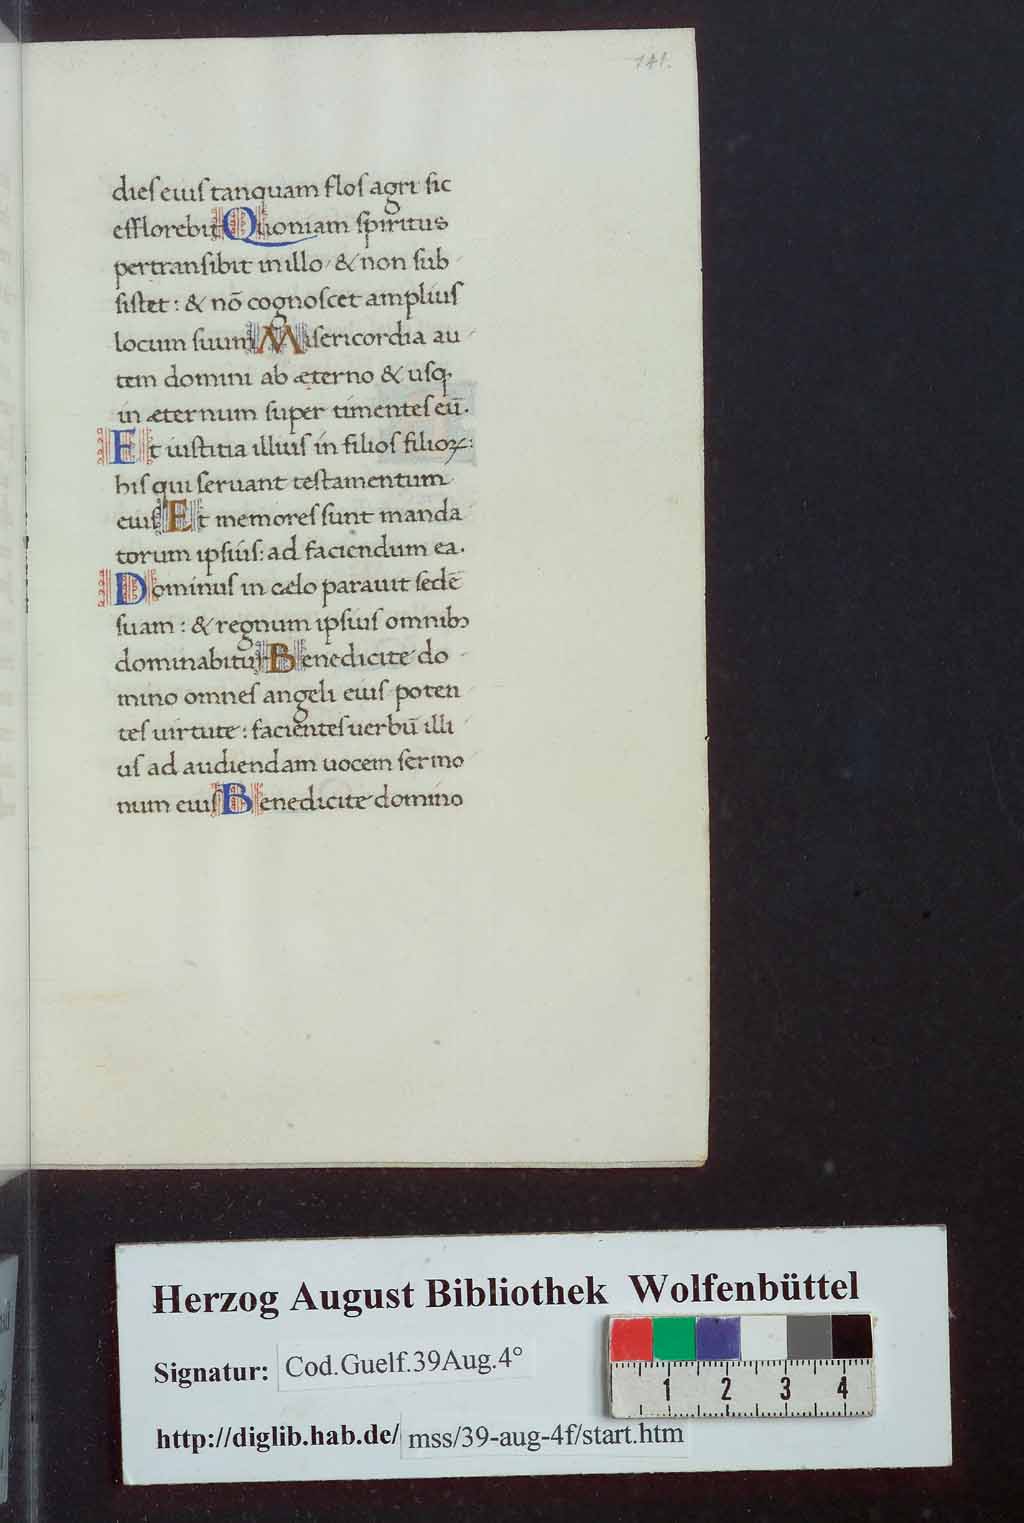 141.
dieſ eiuſ tanquam floſ agri ſic
efflorebit Quoniam ſpiritus
pertranſibit in illo & non ſub
ſiſtet: & nō cognoſcet ampliuſ
locum ſuum Miſericordia au
tem domini ab æterno & uſq;
in æternum ſuper timenteſ eū.
Et iuſtitia illiuſ in filioſ filioꝝ:
hiſ qui ſeruant teſtamentum
eiuſ Et memoreſ ſunt manda
torum ipſiuſ: ad faciendum ea.
Dominuſ in cælo parauit ſedē
ſuam: & regnum ipſiuſ omnibꝫ
dominabitur Benedicite do
mino omneſ angeli eiuſ poten
teſ uirtute: facienteſ uerbū illi
uſ ad audiendam uocem ſermo
num eiuſ Benedicite domino
Herzog August Bibliothek Wolfenbüttel
Signatur: Cod.Guelf.39Aug.4°
http://diglib.hab.de/ mss/39-aug-4f/start.htm
1 2 3 4